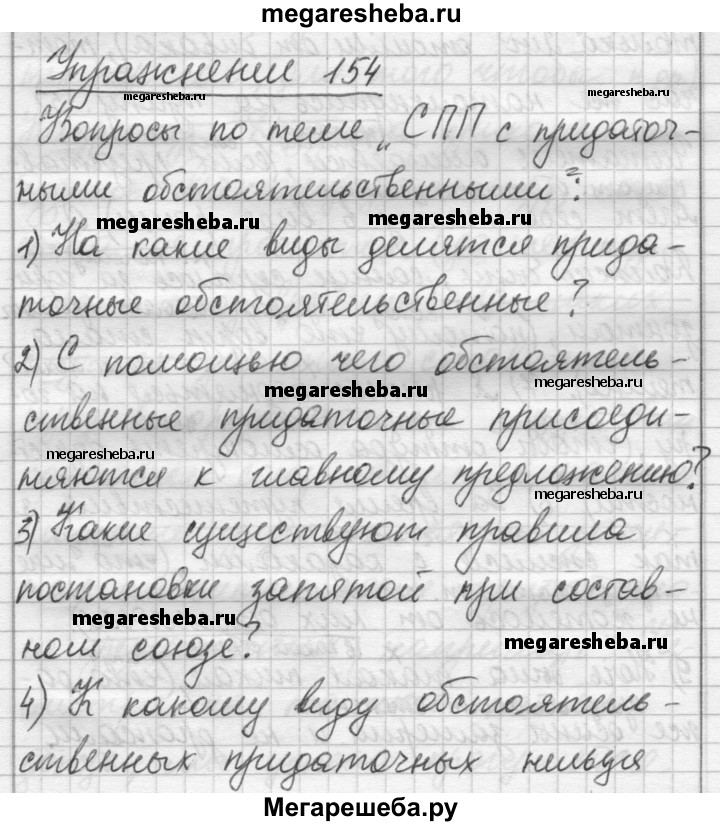 megaresheba.ru
Упражнение 154
megaresheba.ru megaresheba.ru
Вопросы по теме „СПП с придаточ-
ными обстоятельственными":
megaresheba.ru megaresheba.ru
1) На какие виды делятся прида-
точные обстоятельственные?
2) С помощью чего обстоятель-
megaresheba.ru megaresheba.ru
ственные придаточные присоеди-
megaresheba.ru
няются к главному предложению?
megaresheba.ru
3) Какие существуют правила
постановки запятой при состав-
megaresheba.ru
ном союзе?
megaresheba.ru
4) К какому виду обстоятель-
ственных придаточных нельзя
Мегарешеба.ру